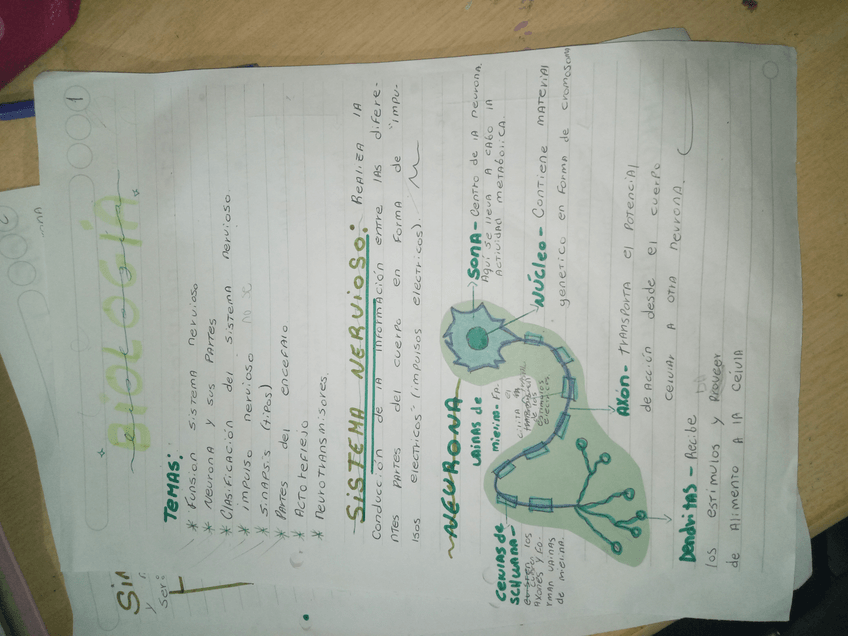 BIOLOGÍA
TEMAS:
* Funsion sistema nervioso
* Neurona y sus partes
* Clasificación del sistema nervioso.
* impulso nervioso no x
* Sinapsis (tipos)
* Partes del encefalo
* Acto reflejo
* Neurotransmisores.
SISTEMA NERVIOSO: Realiza la
Conducción de la información entre las difere-
ntes partes del cuerpo en forma de "impu-
lsos electricos" (impulsos electricos).
~NEURONA~
SOMA- Centro de la neurona.
Aquí se lleva a cabo la
actividad metabolica.
NÚCLEO- Contiene material
genetico en forma de cromosoma
Axon- transporta el potencial
de acción desde el cuerpo
celular a otra neurona.
vainas de
mielina- Fa-
cilita la
transmisión
de los
estimulos
electricos.
Celulas de
SCHWANN-
Cubren los
axones y fo-
rman vainas
de mielina.
Dendritas- Recibe
los estimulos y proveer
de alimento a la celula
Sin
y
ser: